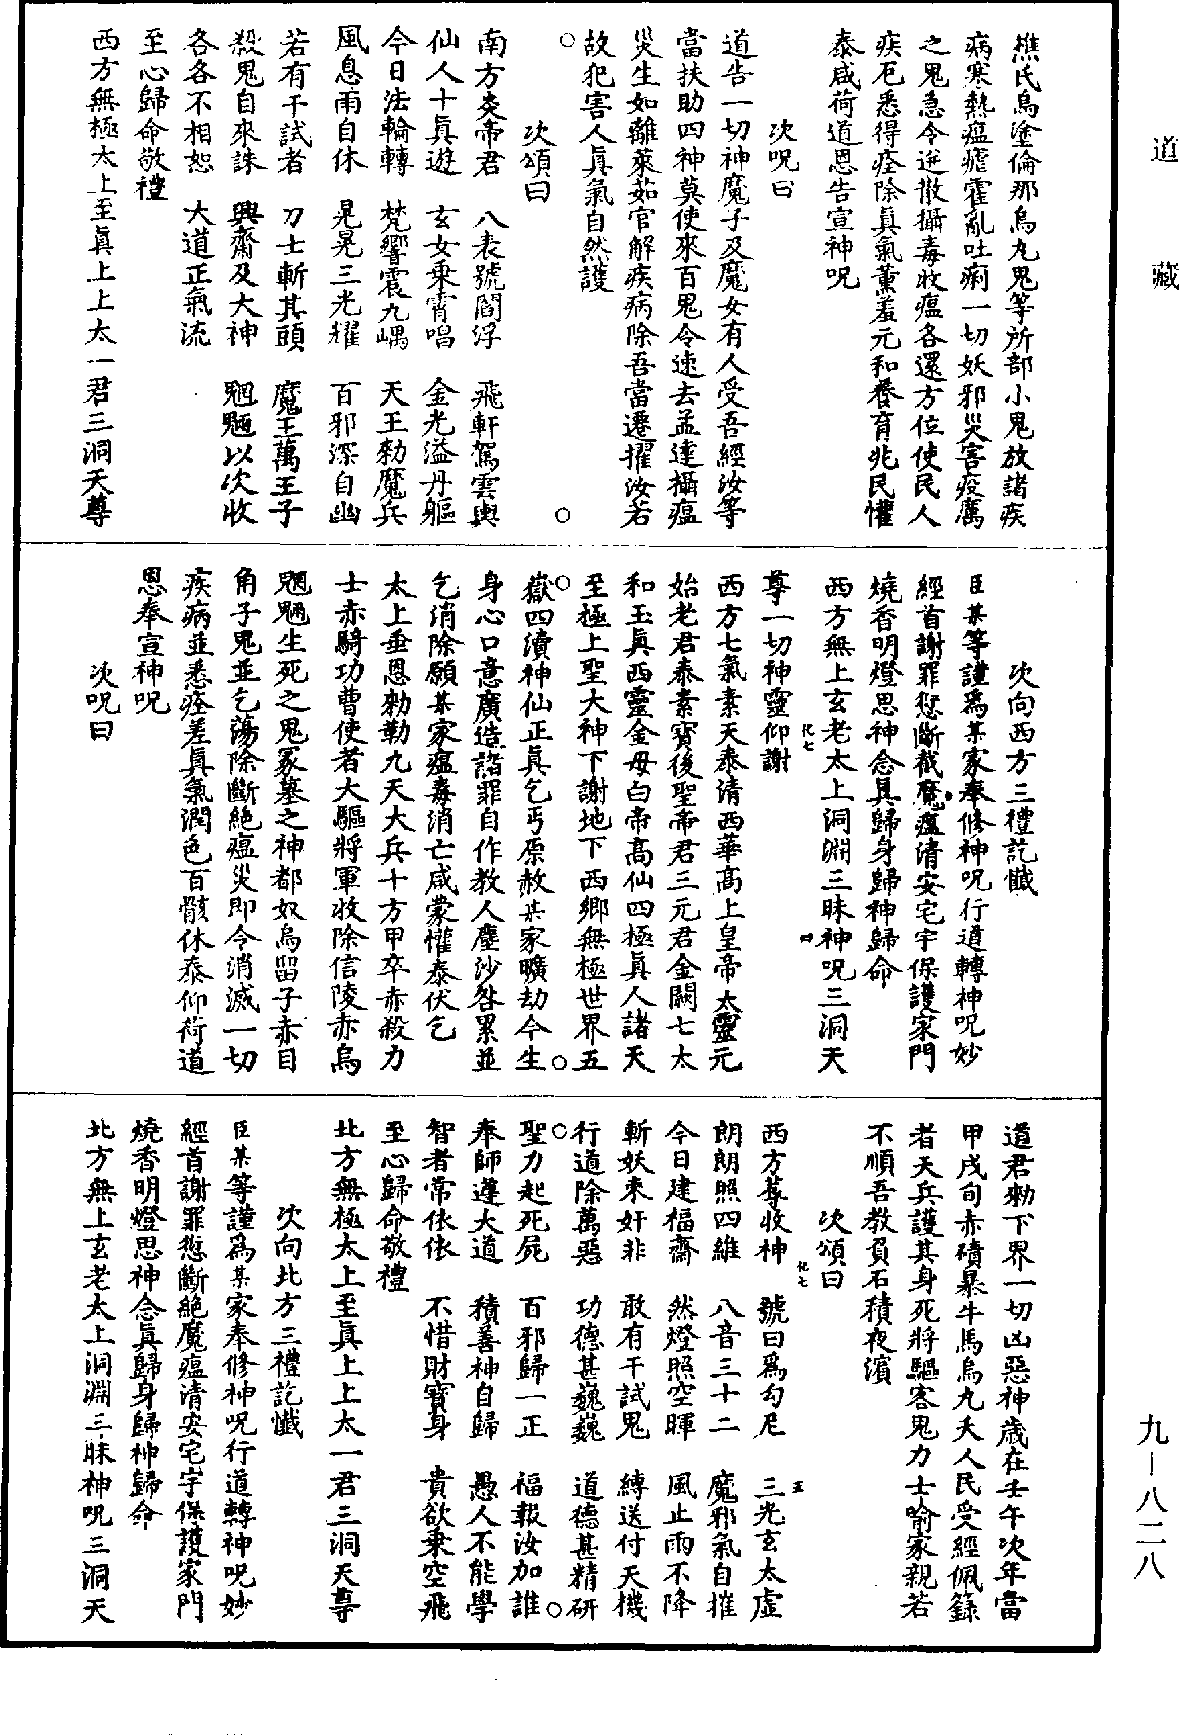 道藏
樵氏烏塗倫那烏九鬼等所部小鬼放諸疾
病寒熱瘟瘧霍亂吐痢一切妖邪災害疫厲
之鬼急令逆散攝毒收瘟各還方位使民人
疾厄悉得痊除眞氣薰羞元和養育兆民懽
泰咸荷道恩告宣神呪
次呪曰
道告一切神魔子及魔女有人受吾經汝等
當扶助四神莫使來百鬼令速去孟達攝瘟
災生如離萊茹官解疾病除吾當遷擢汝若
故犯害人眞氣自然護
次頌曰
南方炎帝君 八表號閻浮 飛軒駕雲輿
仙人十眞遊 玄女乗霄唱 金光溢丹軀
今日法輪轉 梵響震九嵎 天王勑魔兵
風息雨自休 晃晃三光耀 百邪深自幽
若有干試者 刀士斬其頭 魔王萬王子
殺鬼自來誅 興齋及大神 魍魎以次收
各各不相恕 大道正氣流
至心歸命敬禮
西方無極太上至眞上上太一君三洞天尊
次向西方三禮訖懺
臣某等謹爲某家奉修神呪行道轉神呪妙
經首謝罪愆斷截魔瘟清安宅宇保護家門
燒香明燈思神念具歸身歸神歸命
西方無上玄老太上洞淵三昧神呪三洞天
尊一切神靈仰謝
西方七氣素天泰清西華高上皇帝太靈元
始老君泰素寳後聖帝君三元君金闕七太
和玉眞西靈金母白帝高仙四極眞人諸天
至極上聖大神下謝地下西鄉無極世界五
嶽四瀆神仙正眞乞丐原赦某家曠劫今生
身心口意廣造諸罪自作教人塵沙咎累並
乞消除願某家瘟毒消亡咸蒙懽泰伏乞
太上垂恩勑勒九天大兵十方甲卒赤殺力
士赤騎功曹使者大驅將軍收除信陵赤烏
魍魎生死之鬼冢墓之神都奴烏留子赤目
角子鬼並乞蕩除斷絕瘟災即令消滅一切
疾病並悉痊差眞氣潤色百骸休泰仰荷道
恩奉宣神呪
次呪曰
道君勑下界一切凶惡神歳在壬午次年當
甲戌旬赤磧暴牛馬烏九夭人民受經佩籙
者天兵護其身死將驅客鬼力士喻家親若
不順吾教負石積夜濱
次頌曰
西方尊收神 號曰爲勾尼 三光玄太虛
朗朗照四維 八音三十二 魔邪氣自摧
今日建福齋 然燈照空暉 風止雨不降
斬妖來奸非 敢有干試鬼 縛送付天機
行道除萬惡 功德甚巍巍 道德甚精研
聖力起死屍 百邪歸一正 福報汝加誰
奉師遵大道 積善神自歸 愚人不能學
智者常依依 不惜財寳身 貴欲乗空飛
至心歸命敬禮
北方無極太上至眞上上太一君三洞天尊
次向北方三禮訖懺
臣某等謹爲某家奉修神呪行道轉神呪妙
經首謝罪愆斷絕魔瘟清安宅宇保護家門
燒香明燈思神念眞歸身歸神歸命
北方無上玄老太上洞淵三昧神呪三洞天
九—八二八